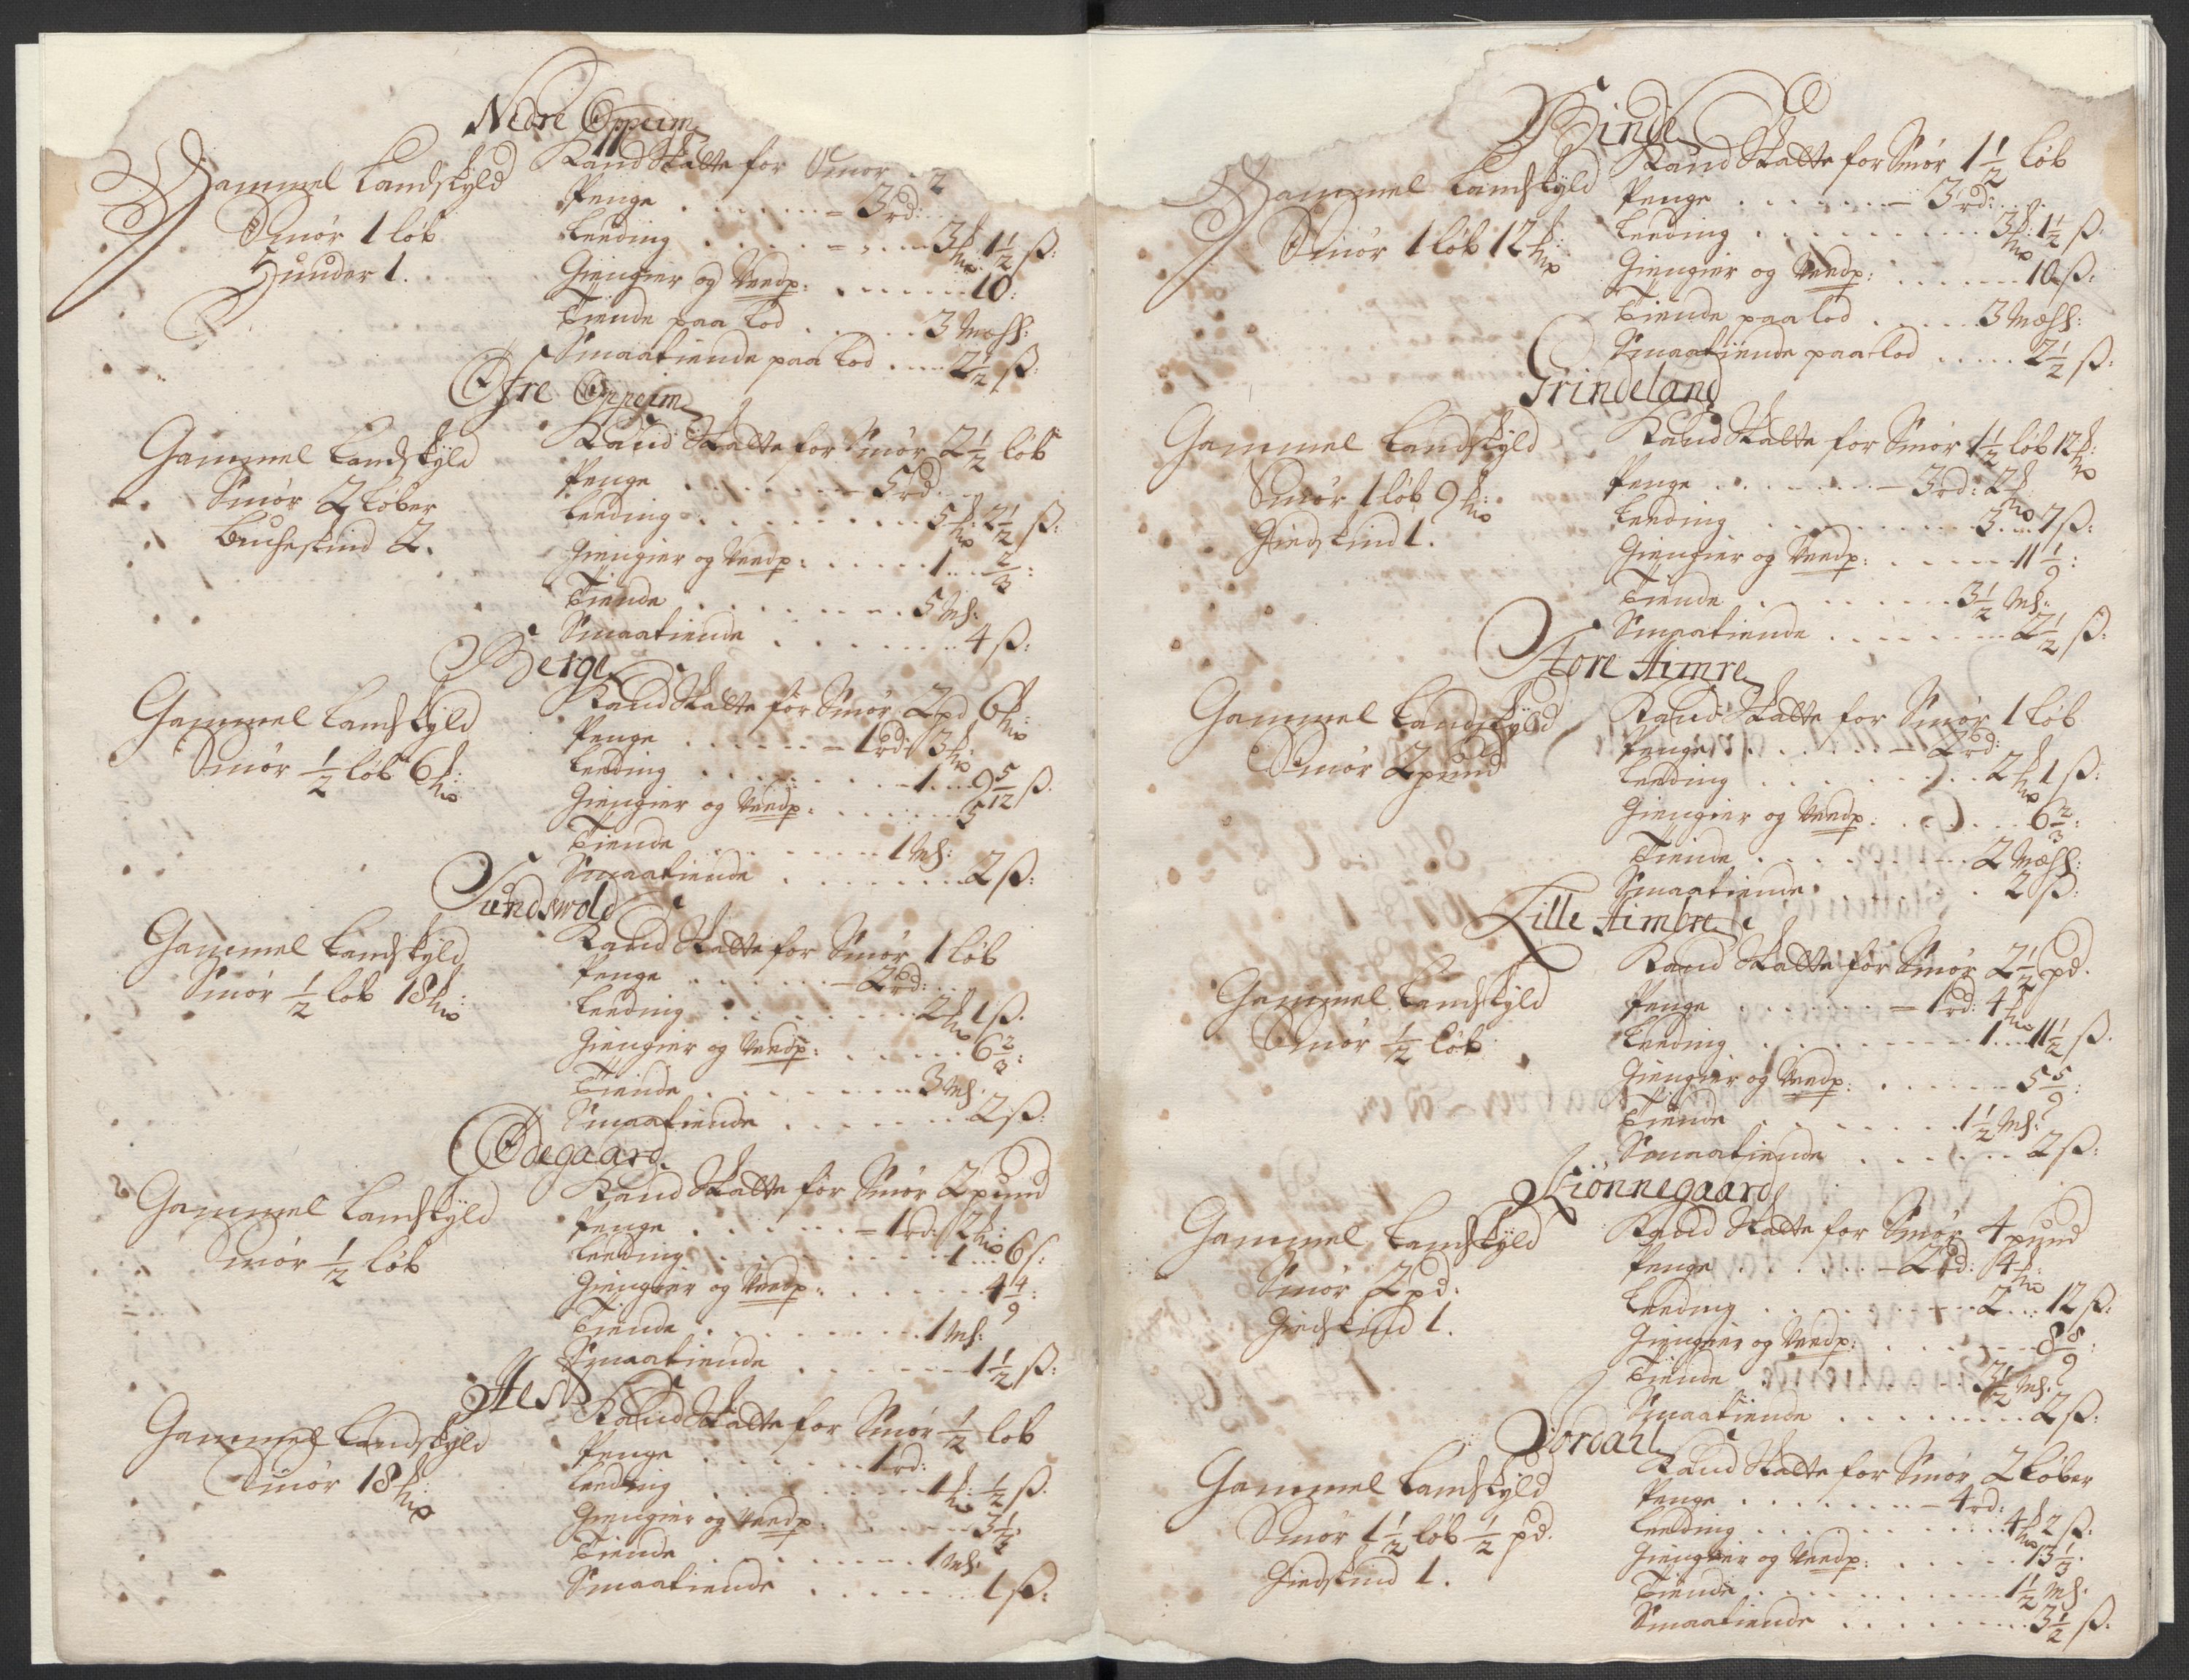 Nedre Oppeim
Gammel Landskyld
Smør 1 løb
Huuder 1.
Land Skatte for Smør 2
Penge . . . . . . 3 rd:
Leeding . . . . . . 3 1/2 ß:
Giengier og Veedp: . . . . . . 10:
Tiende paa Lod . . . . . 3 Mæss:
Smaatiende paa Lod . . . 2 1/2 ß:
Øfre Oppeim
Gammel Landskyld
Smør 2 Løber
Buckeskind 2.
Land Skatte for Smør 2 1/2 løb
Penge . . . . . . 5 rd.
Leeding . . . . . . . . 5 2 1/2 ß:
Giengier og Veedp: . . . . . 1 . . 2/3:
Tiende . . . . . . . 5 Ms:
Smaatiende . . . . . . . 4 ß:
Berge
Gammel Landskyld
Smør 1/2 løb 6
Land Skatte for Smør 2 pd 6
Penge . . . . . . 1 rd: 3
Leeding . . . . . . . 1 . . . 9 5/12 ß.
Giengier og Veedp: . . . . . . 5
Tiende . . . . . . . 1 Ms:
Smaatiende . . . . . . . 2 ß:
Sundswold
Gammel Landskyld
Smør 1/2 løb 18
Land Skatte for Smør 1 løb
Penge . . . . . . 2 rd:
Leeding . . . . . . . 2 1 ß.
Giengier og Veedp: . . . . . 6 2/3:
Tiende . . . . . . . 3 Ms.
Smaatiende . . . . . . . 2 ß:
Ødegaard
Gammel Landskyld
Smør 1/2 løb
Land Skatte for Smør 2 pund
Penge . . . . . . 1 rd: 2
Leeding . . . . . . . 1 . . . 6 ß:
Giengier og Veedp: . . . . . . 4 4/9:
Tiende . . . . . . . 1 Ms:
Smaatiende . . . . . . 1 1/2 ß:
Gammel Landskyld
Smør 18
Land Skatte for Smør 1/2 løb
Penge . . . . . . 1 rd:
Leeding . . . . . . . 1 1/2 ß.
Giengier og Veedp: . . . . . 3 1/3:
Tiende . . . . . . . 1 Ms.
Smaatiende . . . . . . . 1 ß:
Binde
Gammel Landskyld
Smør 1 løb 12
Land Skatte for Smør 1 1/2 løb
Penge . . . . . . 3 rd:
Leeding . . . . . . . . 3 1 1/2 ß.
Giengier og Veedp: . . . . . . 10 ß:
Tiende paa Lod . . . . . 3 Mæss:
Smaatiende paa Lod . . . . . 2 1/2 ß:
Grindeland
Gammel Landskyld
Smør 1 løb 9
Giedskind 1.
Land Skatte for Smør 1 1/2 løb 12
Penge . . . . . . 3 rd: 2
Leeding . . . . . . . 3 . . . 7 ß:
Giengier og Veedp: . . . . . 11 1/9:
Tiende . . . . . . . 3 1/2 Ms:
Smaatiende . . . . . . . 2 1/2 ß:
Store Himre
Gammel Landskyld
Smør 2 pund
Land Skatte for Smør 1 løb
Penge . . . . . . 2 rd:
Leeding . . . . . . . 2 1 ß:
Giengier og Veedp: . . . . . 6 2/3:
Tiende . . . . . . . 2 Mæss:
Smaatiende . . . . . . . 2 ß:
Lille Himbre
Gammel Landskyld
Smør 1/2 løb
Land Skatte for Smør 2 1/2 pd.
Penge . . . . . . 1 rd: 4
Leeding . . . . . . . 1 . . . 11 1/2 ß.
Giengier og Veedp: . . . . . . 5 5/9:
Tiende . . . . . . . 1 1/2 Ms:
Smaatiende . . . . . . 2 ß:
Kiønnegaard
Gammel Landskyld
Smør 2 pd.
Giedskind 1.
Land Skatte for Smør 4 pund
Penge . . . . . . 2 rd: 4
Leeding . . . . . . . 2 . . . 12 ß:
Giengier og Veedp: . . . . . . 8 8/9:
Tiende . . . . . . . 3 1/2 Ms.
Smaatiende . . . . . . . 2 ß:
Jordahl
Gammel Landskyld
Smør 1 1/2 løb 1/2 pd.
Giedskind 1.
Land Skatte for Smør 2 Løber
Penge . . . . . . 4 rd:
Leeding . . . . . . . . 4 2 ß.
Giengier og Veedp: . . . . . 13 1/3.
Tiende . . . . . . . 1 1/2 Ms.
Smaatiende . . . . . . . 3 1/2 ß: